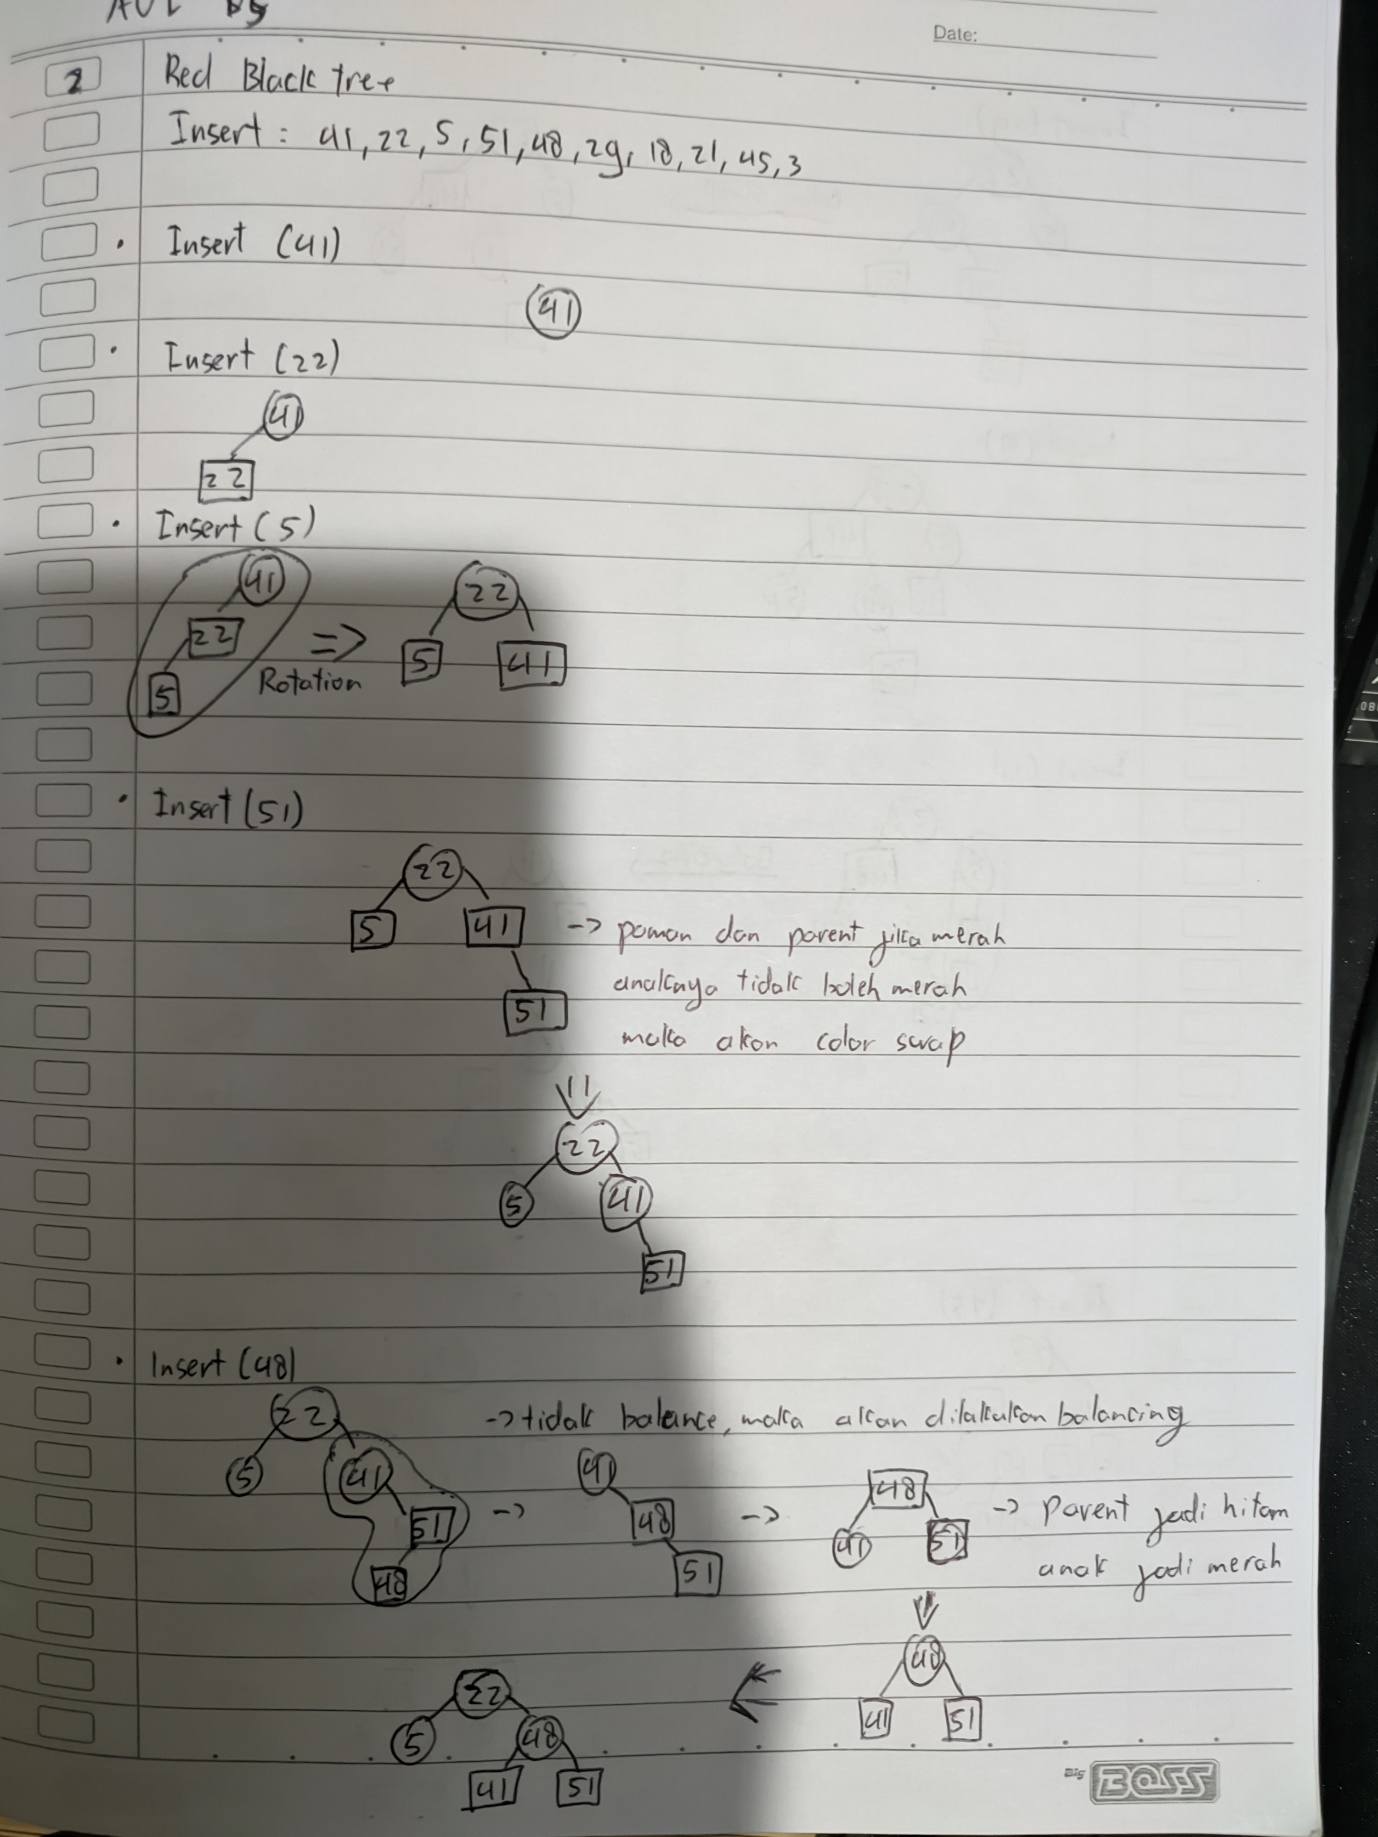 Date:
2 Red Black tree
Insert : 41, 22, 5, 51, 48, 29, 18, 21, 45, 3
• Insert (41)
41
• Insert (22)
41
22
• Insert (5)
41
22
5
=> Rotation
22
5 41
• Insert (51)
22
5 41
51
-> paman dan parent jika merah
anaknya tidak boleh merah
maka akan color swap
22
5 41
51
• Insert (48)
-> tidak balance, maka akan dilakukan balancing
22
5 41
51
48
->
41
48
51
->
48
41 51
-> parent jadi hitam
anak jadi merah
48
41 51
22
5 48
41 51
Big BOSS